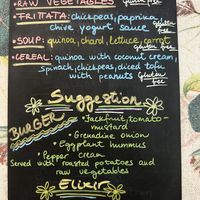 •RAW VEGETABLES gluten free
•FRITTATA: chickpeas, paprika,
chive yogurt sauce gluten free
•SOUP: quinoa, chard, lettuce, carrot
gluten free
•CEREAL: quinoa with coconut cream,
spinach, chickpeas, diced tofu
with peanuts gluten free
Suggestion
BURGER
•Jackfruit, tomato
mustard
•Grenadine onion
•Eggplant hummus
Pepper cream
Served with roasted potatoes and
raw vegetables
Elixir